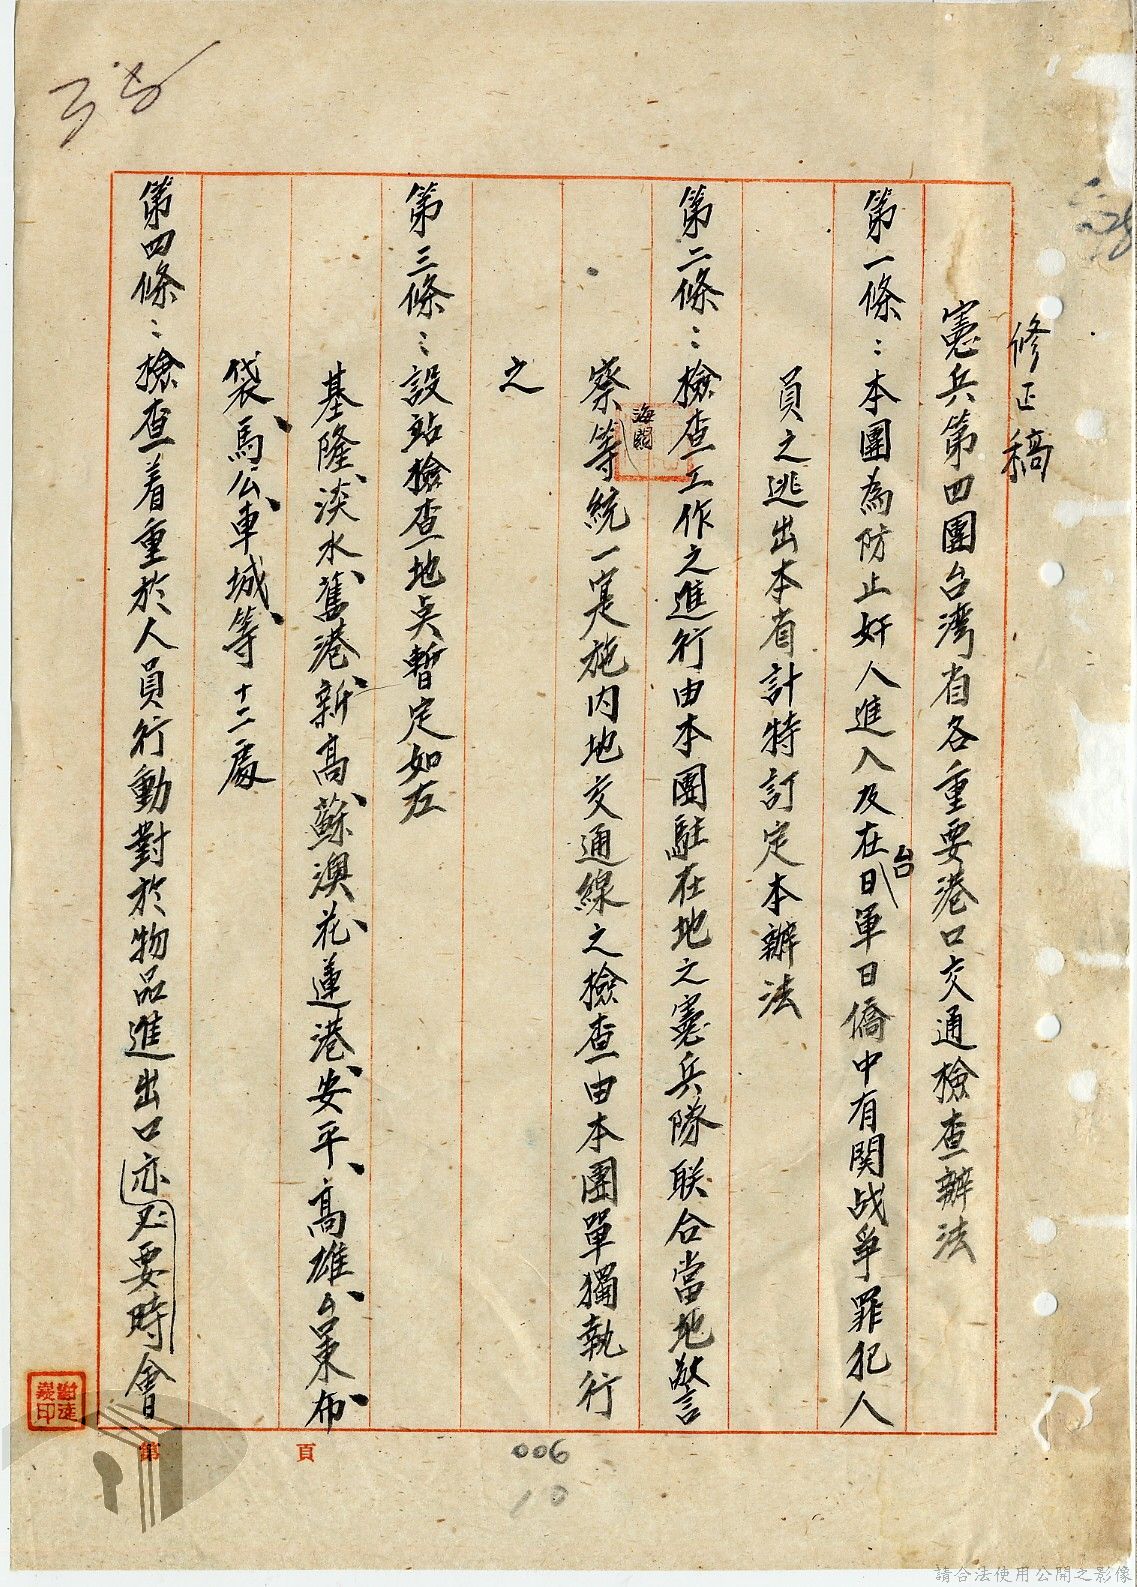 修正稿
憲兵第四團台湾省各重要港口交通檢查辦法
第一條：本團為防止奸人進入及在日軍日僑中有関战爭罪犯人
台
員之逃出本省計特訂定本辦法
第二條：檢查工作之進行由本團駐在地之憲兵隊联合當地警
海關
察等統一实施内地交通線之檢查由本團單獨執行
之
第三條：設站檢查地点暫定如左
基隆、淡水、舊港、新高、蘇澳、花蓮港、安平、高雄、台東、布
袋、馬公、車城、等十二處
第四條：檢查着重於人員行動對於物品進出口亦必要時會
第 頁
006
10
請合法使用公開之影像